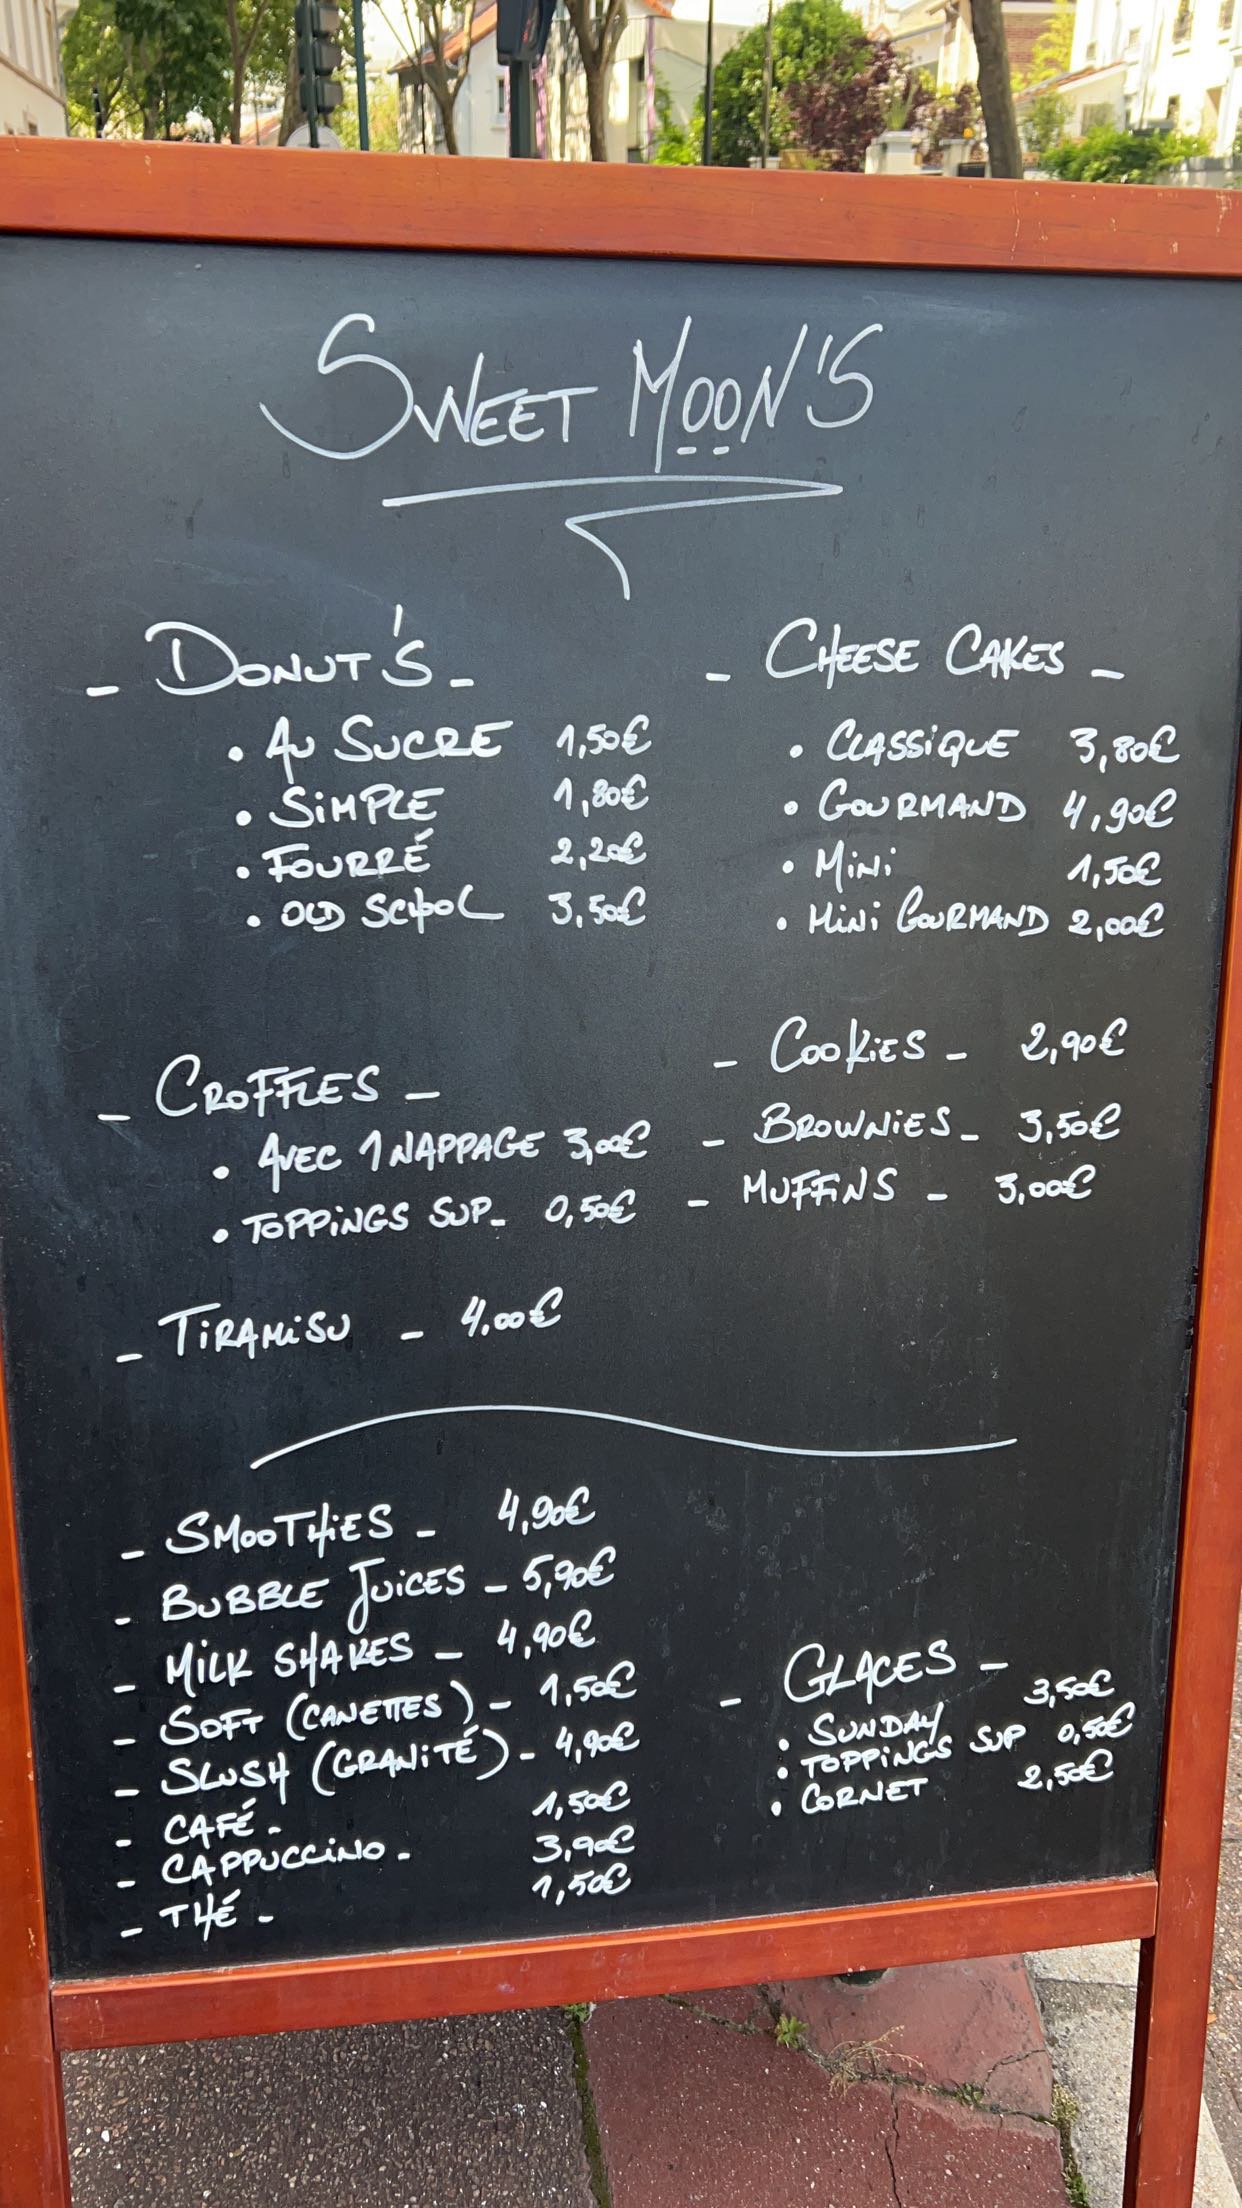 SWEET MOON'S
- DONUT'S -
• AU SUCRE 1,50€
• SiMPLE 1,80€
• FOURRÉ 2,20€
• OLD SCHOOL 3,50€
- CHEESE CAKES -
• CLASSiQUE 3,80€
• GOURMAND 4,90€
• MiNi 1,50€
• MiNi GOURMAND 2,00€
- CROFFLES -
• AVEC 1 NAPPAGE 3,00€
• TOPPiNGS SUP- 0,50€
- COOKiES - 2,90€
- BROWNiES - 3,50€
- MUFFiNS - 3,00€
- TiRAMiSU - 4.00€
- SMOOTHiES - 4,90€
- BUBBLE JUiCES - 5,90€
- MiLK SHAKES - 4,90€
- SOFT (CANETTES) - 1,50€
- SLUSH (GRANiTÉ) - 4,90€
- CAFÉ - 1,50€
- CAPPUCCiNO - 3,90€
- THÉ - 1,50€
- GLACES -
• SUNDAY 3,50€
• TOPPiNGS SUP 0,50€
• CORNET 2,50€